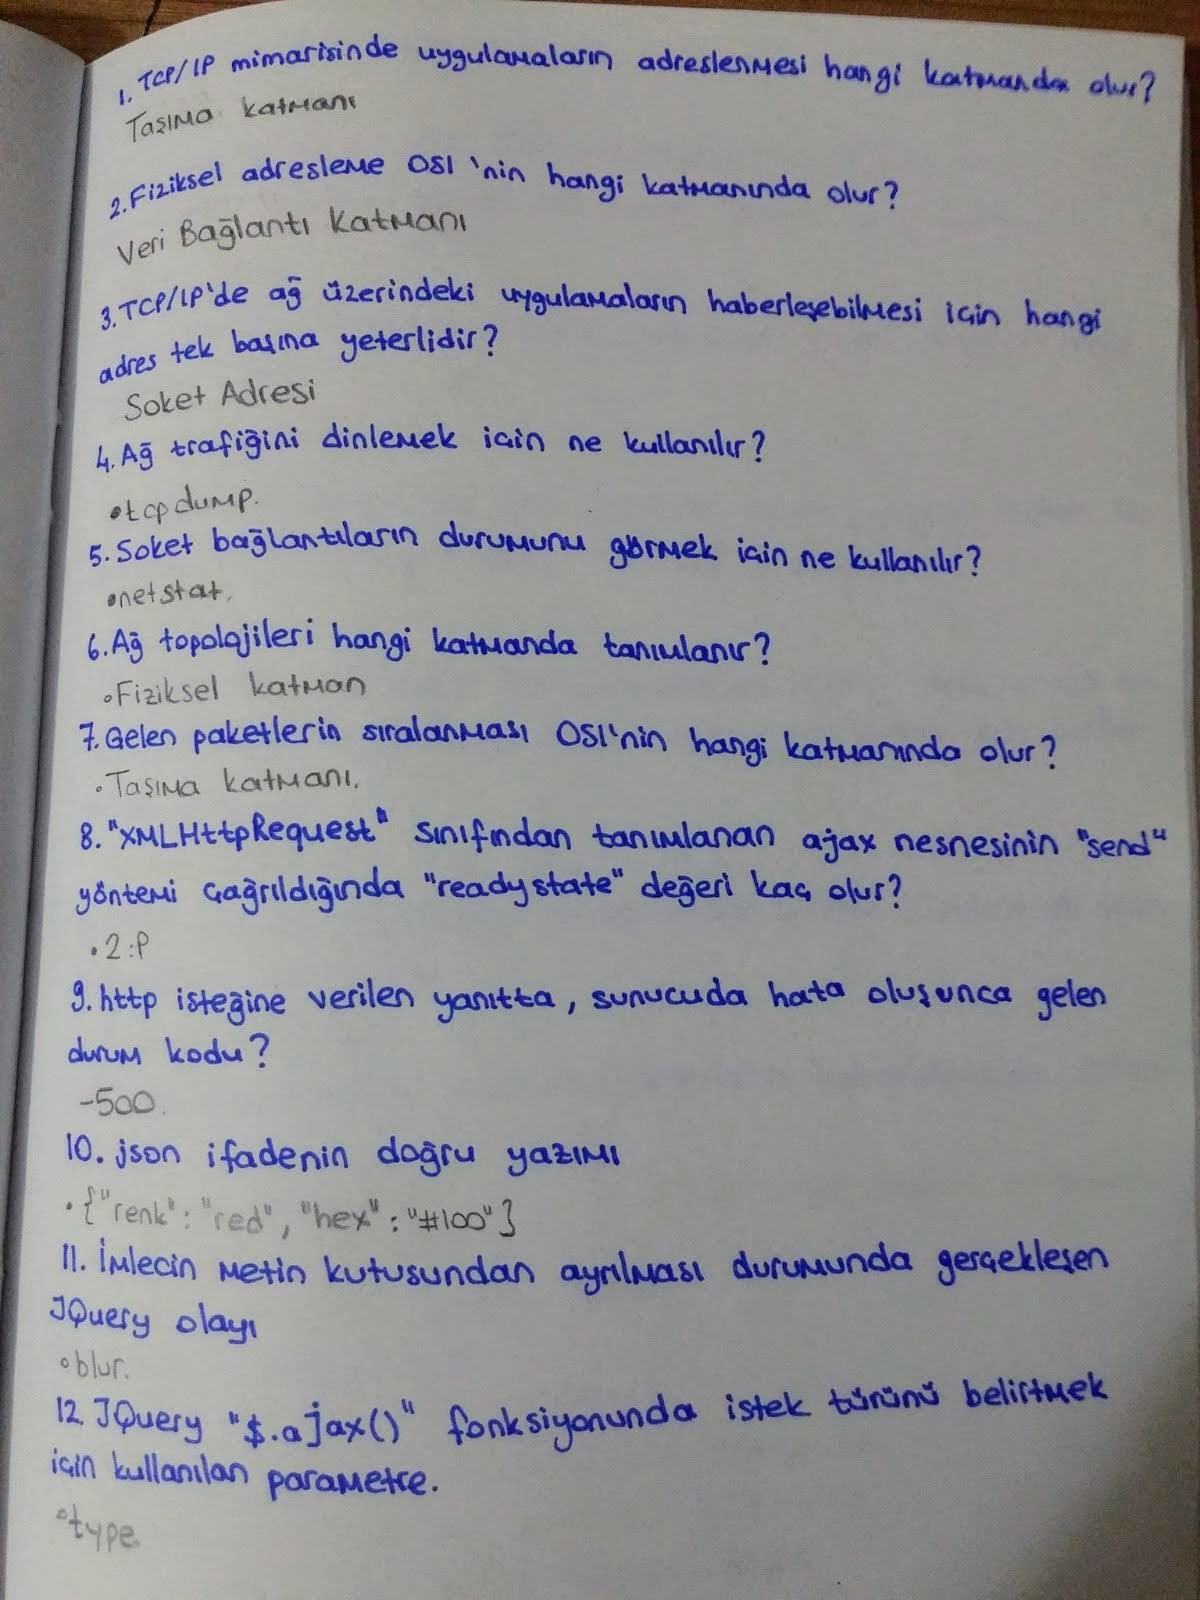 1. TCP/IP mimarisinde uygulamaların adreslenmesi hangi katmanda olur?
Taşıma katmanı
2. Fiziksel adresleme OSI 'nin hangi katmanında olur?
Veri Bağlantı Katmanı
3. TCP/IP'de ağ üzerindeki uygulamaların haberleşebilmesi için hangi
adres tek başına yeterlidir?
Soket Adresi
4. Ağ trafiğini dinlemek için ne kullanılır?
•tcpdump.
5. Soket bağlantıların durumunu görmek için ne kullanılır?
•netstat.
6. Ağ topolojileri hangi katmanda tanımlanır?
•Fiziksel katman
7. Gelen paketlerin sıralanması OSI'nin hangi katmanında olur?
•Taşıma katmanı.
8. "XMLHttpRequest" sınıfından tanımlanan ajax nesnesinin "send"
yöntemi çağrıldığında "readystate" değeri kaç olur?
•2:P
9. http isteğine verilen yanıtta, sunucuda hata oluşunca gelen
durum kodu?
-500.
10. json ifadenin doğru yazımı
•{"renk": "red", "hex": "#100"}
11. İmlecin metin kutusundan ayrılması durumunda gerçekleşen
JQuery olayı
•blur.
12. JQuery "$.ajax()" fonksiyonunda istek türünü belirtmek
için kullanılan parametre.
•type.